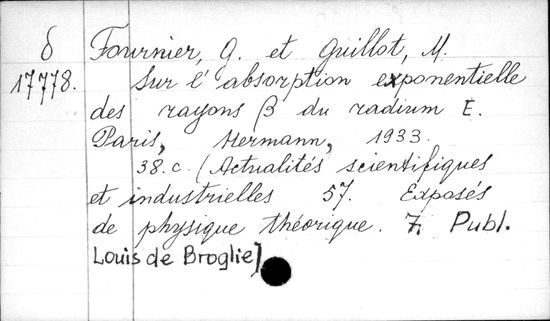 δ Fournier, G. et Guillot, M.
17778. Sur l'absorption exponentielle
des rayons β du radium E.
Paris, Hermann, 1933.
38.c. (Actualités scientifiques
et industrielles 57. Exposés
de physique théorique. 7. Publ.
Louis de Broglie)